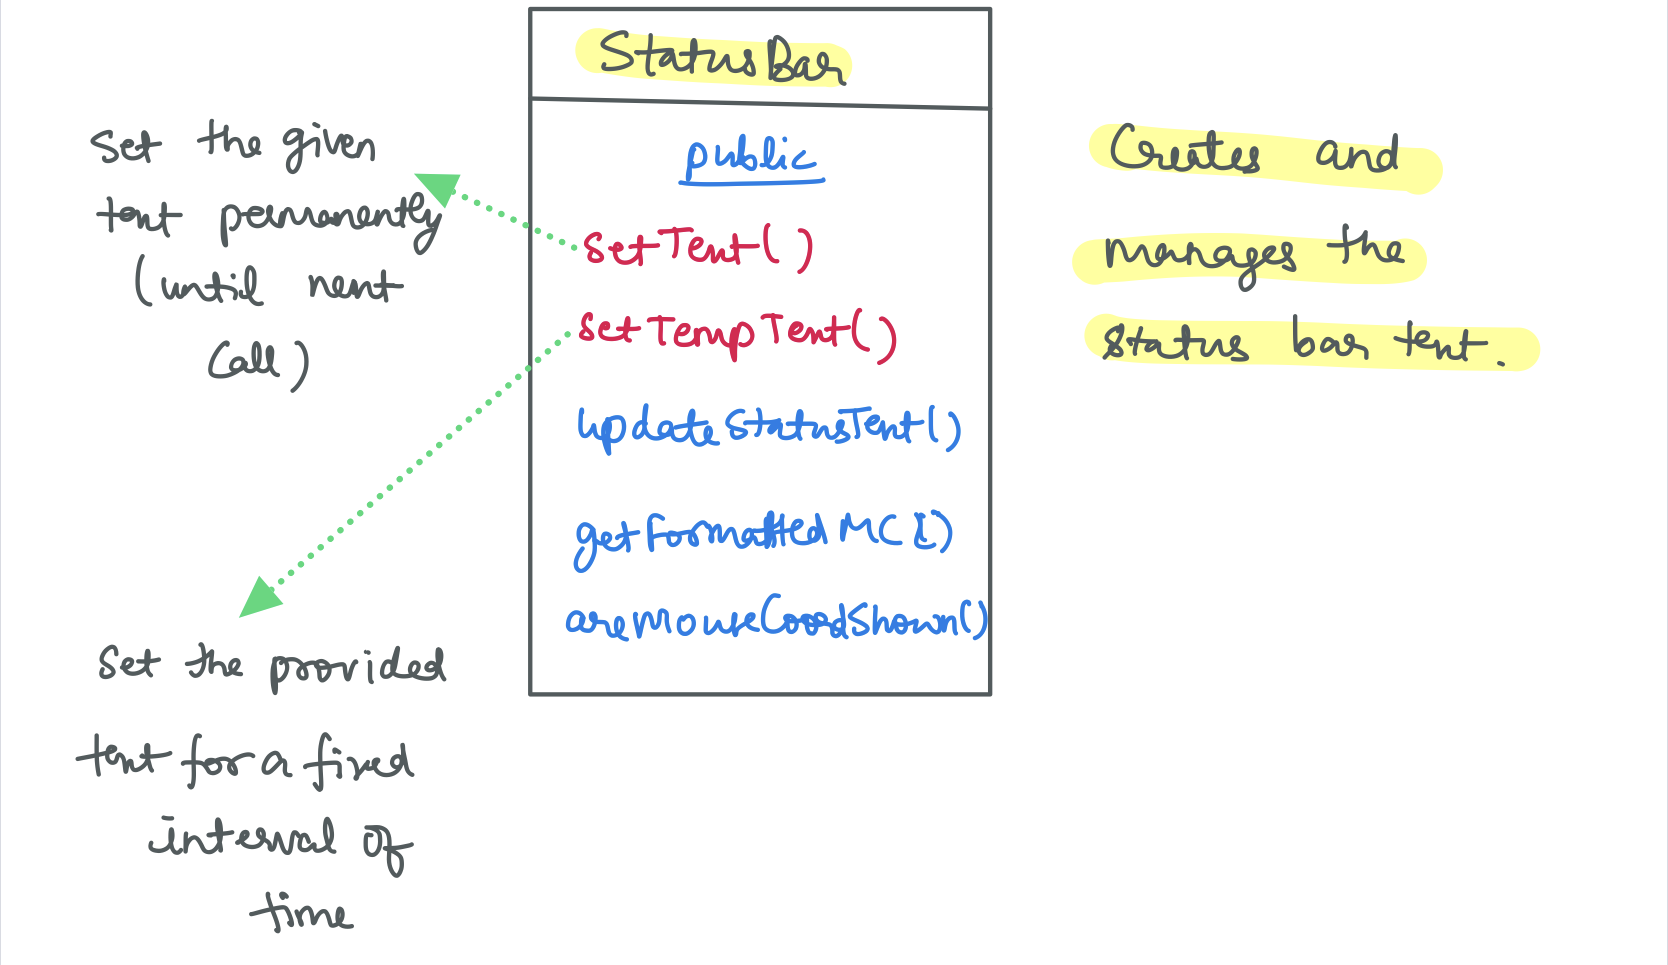 StatusBar
public
setText()
setTempText()
updateStatusText()
getFormattedMC()
areMouseCoordShown()
Set the given
text permanently
(until next
Call)
Set the provided
text for a fixed
interval of
time
Creates and
manages the
status bar text.